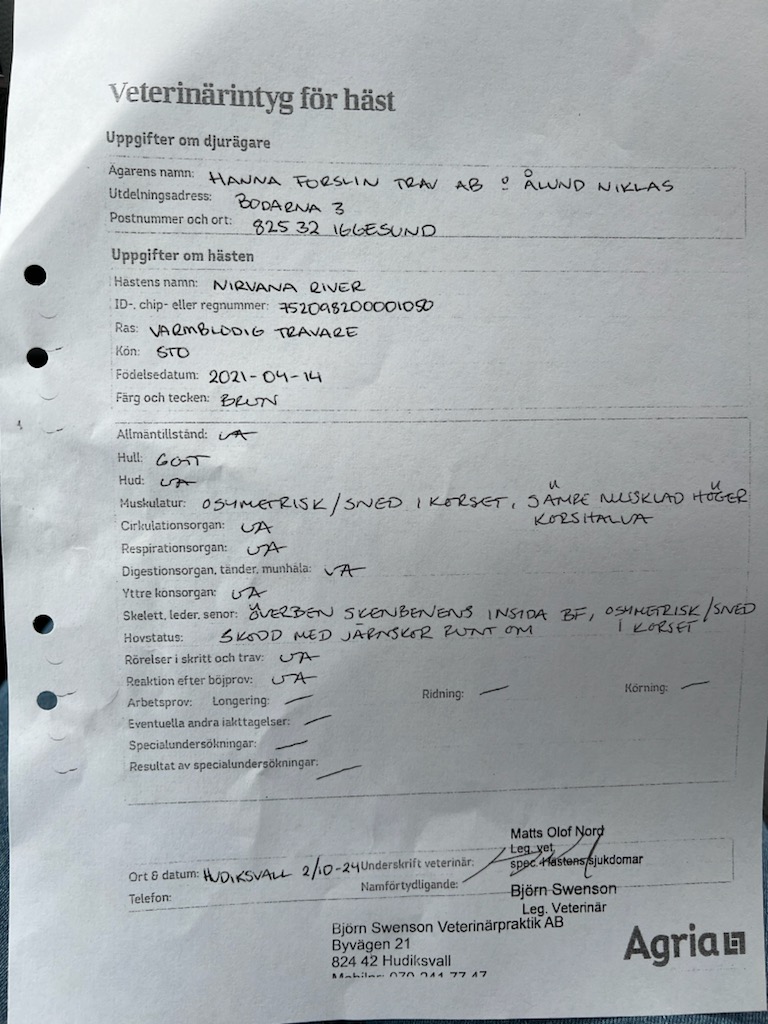 Veterinärintyg för häst
Uppgifter om djurägare
Ägarens namn: HANNA FORSLIN TRAV AB o ÅLUND NIKLAS
Utdelningsadress: BODARNA 3
Postnummer och ort: 825 32 IGGESUND
Uppgifter om hästen
Hästens namn: NIRVANA RIVER
ID-, chip- eller regnummer: 752098200001050
Ras: VARMBLODIG TRAVARE
Kön: STO
Födelsedatum: 2021-04-14
Färg och tecken: BRUN
Allmäntillstånd: UA
Hull: GOTT
Hud: UA
Muskulatur: OSYMETRISK/SNED I KORSET, SÄMRE MUSKLAD HÖGER
KORSHALVA
Cirkulationsorgan: UA
Respirationsorgan: UA
Digestionsorgan, tänder, munhåla: UA
Yttre könsorgan: UA
Skelett, leder, senor: ÖVERBEN SKENBENENS INSIDA BF, OSYMETRISK/SNED
I KORSET
Hovstatus: SKODD MED JÄRNSKOR RUNT OM
Rörelser i skritt och trav: UA
Reaktion efter böjprov: UA
Arbetsprov: Longering: — Ridning: — Körning: —
Eventuella andra iakttagelser: —
Specialundersökningar: —
Resultat av specialundersökningar: —
Matts Olof Nord
Leg. vet.
spec. Hästens sjukdomar
Ort & datum: HUDIKSVALL 2/10-24 Underskrift veterinär:
Telefon: Namförtydligande:
Björn Swenson
Leg. Veterinär
Björn Swenson Veterinärpraktik AB
Byvägen 21
824 42 Hudiksvall
Mobiler: 070 341 77 47
Agria